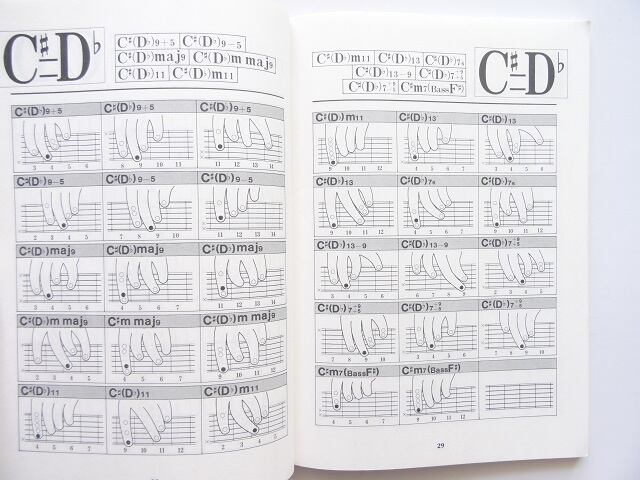 C♯-D♭
C♯(D♭)9+5 C♯(D♭)9−5
C♯(D♭)maj9 C♯(D♭)m maj9
C♯(D♭)11 C♯(D♭)m11
C♯(D♭)9+5 C♯(D♭)9+5 C♯(D♭)9+5
3 4 5 6 8 9 10 11 11 12 13 14
C♯(D♭)9−5 C♯(D♭)9−5 C♯(D♭)9−5
2 3 4 5 7 8 9 10 11 12 13 14
C♯(D♭)maj9 C♯(D♭)maj9 C♯(D♭)maj9
3 4 5 6 4 5 6 7 11 12 13 14
C♯(D♭)m maj9 C♯m maj9 C♯(D♭)m maj9
2 3 4 5 4 5 6 7 9 10 11 12
C♯(D♭)11 C♯(D♭)11 C♯(D♭)m11
4 5 6 7 9 10 11 12 2 3 4 5
C♯(D♭)m11 C♯(D♭)13 C♯(D♭)76
C♯(D♭)13−9 C♯(D♭)7
C♯(D♭)7 C♯m7(BassF♯)
C♯-D♭
C♯(D♭)m11 C♯(D♭)13 C♯(D♭)13
9 10 11 12 3 4 5 6 3 4 5 6
C♯(D♭)13 C♯(D♭)76 C♯(D♭)76
8 9 10 11 2 3 4 5 9 10 11 12
C♯(D♭)13−9 C♯(D♭)13−9 C♯(D♭)7
2 3 4 5 6 7 8 9 2 3 4 5
C♯(D♭)7 C♯(D♭)7 C♯(D♭)7
7 8 9 10 2 3 4 5 7 8 9 10
C♯m7(BassF♯) C♯m7(BassF♯)
4 5 6 7 9 10 11 12
29